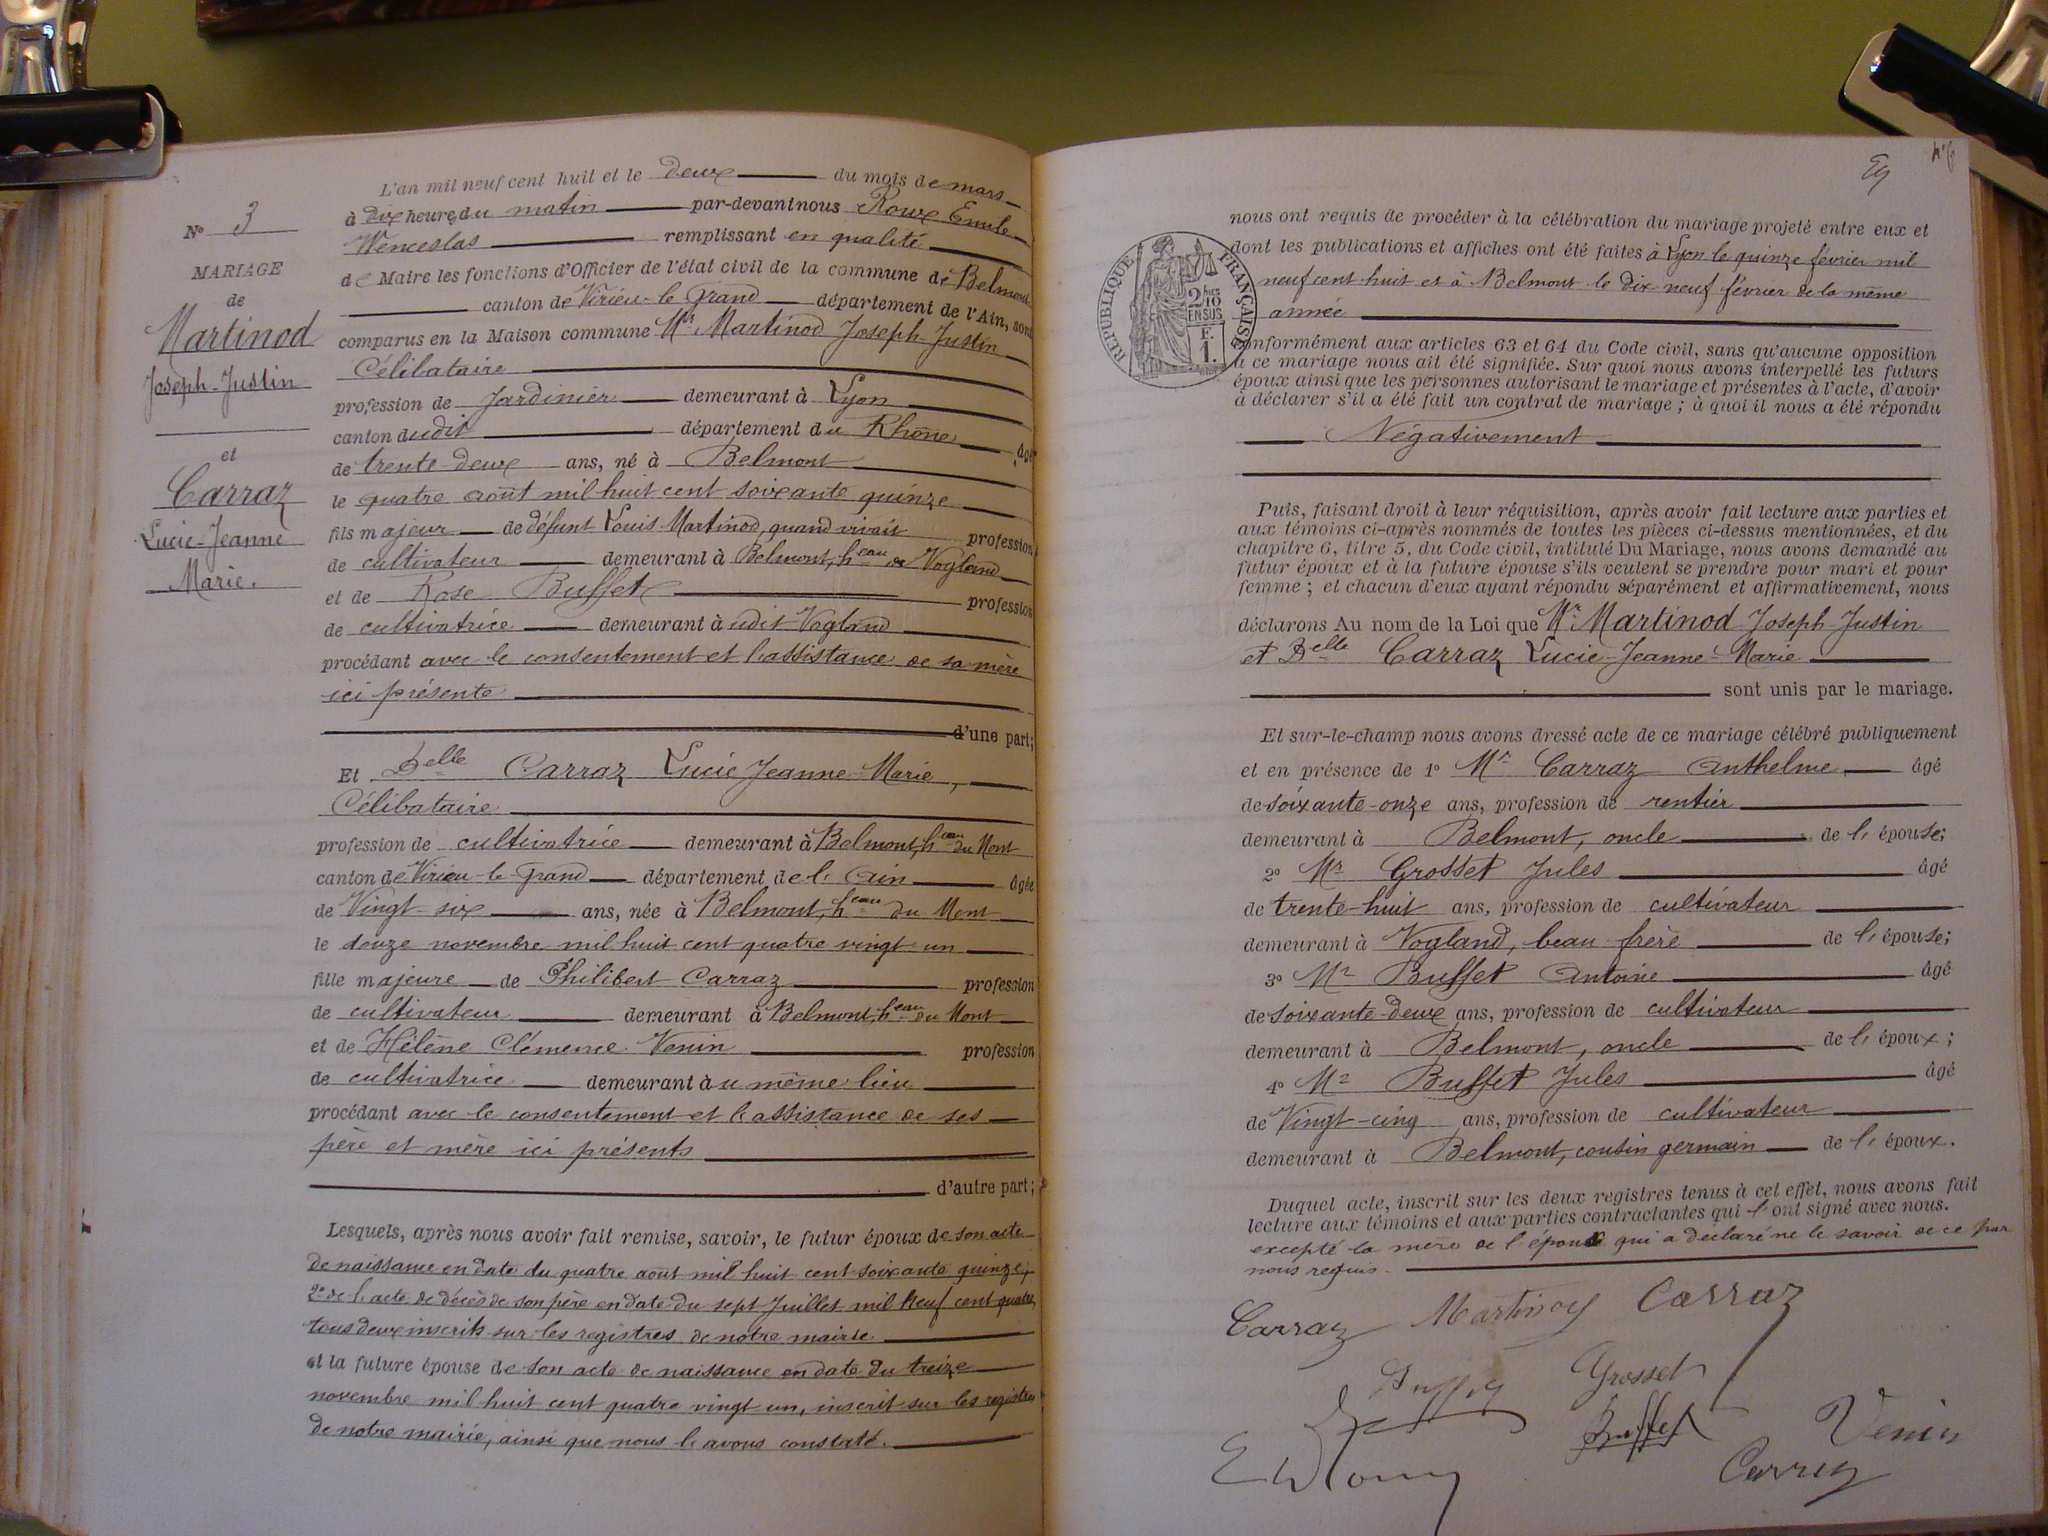 N° 3
MARIAGE
de
Martinod
Joseph-Justin
et
Carraz
Lucie-Jeanne
Marie.
L'an mil neuf cent huit et le deux du mois de mars
à dix heures du matin par-devant nous Roux Emile
Wenceslas remplissant en qualité
de Maire les fonctions d'Officier de l'état civil de la commune de Belmont
canton de Virieu-le-Grand département de l'Ain, sont
comparus en la Maison commune Mr Martinod Joseph-Justin
Célibataire
profession de Jardinier demeurant à Lyon
canton dudit département du Rhône âgé
de trente-deux ans, né à Belmont
le quatre août mil huit cent soixante quinze
fils majeur de défunt Louis Martinod, quand vivait profession
de cultivateur demeurant à Belmont, heau de Vogland
et de Rose Buffet profession
de cultivatrice demeurant audit Vogland
procédant avec le consentement et l'assistance de sa mère
ici présente
d'une part;
Et Delle Carraz Lucie Jeanne-Marie,
Célibataire
profession de cultivatrice demeurant à Belmont, heau du Mont
canton de Virieu-le-Grand département de l'Ain âgée
de Vingt-six ans, née à Belmont, heau du Mont
le douze novembre mil huit cent quatre vingt un
fille majeure de Philibert Carraz profession
de cultivateur demeurant à Belmont, heau du Mont
et de Hélène Clémence Venin profession
de cultivatrice demeurant au même lieu
procédant avec le consentement et l'assistance de ses
père et mère ici présents
d'autre part;
Lesquels, après nous avoir fait remise, savoir, le futur époux de son acte
de naissance en date du quatre août mil huit cent soixante quinze;
2° de l'acte de décès de son père en date du sept Juillet mil neuf cent quatre
tous deux inscrits sur les registres de notre mairie
et la future épouse de son acte de naissance en date du treize
novembre mil huit cent quatre vingt un, inscrit sur les registres
de notre mairie, ainsi que nous l'avons constaté.
RÉPUBLIQUE FRANÇAISE
2/10
EN SUS
F.
1.
nous ont requis de procéder à la célébration du mariage projeté entre eux et
dont les publications et affiches ont été faites à Lyon le quinze février mil
neuf cent huit et à Belmont le dix neuf février de la même
année
conformément aux articles 63 et 64 du Code civil, sans qu'aucune opposition
à ce mariage nous ait été signifiée. Sur quoi nous avons interpellé les futurs
époux ainsi que les personnes autorisant le mariage et présentes à l'acte, d'avoir
à déclarer s'il a été fait un contrat de mariage; à quoi il nous a été répondu
Négativement
Puis, faisant droit à leur réquisition, après avoir fait lecture aux parties et
aux témoins ci-après nommés de toutes les pièces ci-dessus mentionnées, et du
chapitre 6, titre 5, du Code civil, intitulé Du Mariage, nous avons demandé au
futur époux et à la future épouse s'ils veulent se prendre pour mari et pour
femme; et chacun d'eux ayant répondu séparément et affirmativement, nous
déclarons Au nom de la Loi que Mr Martinod Joseph-Justin
et Delle Carraz Lucie-Jeanne-Marie
sont unis par le mariage.
Et sur-le-champ nous avons dressé acte de ce mariage célébré publiquement
et en présence de 1° Mr Carraz Anthelme âgé
de soixante-onze ans, profession de rentier
demeurant à Belmont, oncle de l'épouse;
2° Mr Grosset Jules âgé
de trente-huit ans, profession de cultivateur
demeurant à Vogland, beau frère de l'épouse;
3° Mr Buffet Antoine âgé
de soixante-deux ans, profession de cultivateur
demeurant à Belmont, oncle de l'époux;
4° Mr Buffet Jules âgé
de Vingt-cinq ans, profession de cultivateur
demeurant à Belmont, cousin germain de l'époux.
Duquel acte, inscrit sur les deux registres tenus à cet effet, nous avons fait
lecture aux témoins et aux parties contractantes qui l'ont signé avec nous.
excepté la mère de l'épouse qui a déclaré ne le savoir de ce par
nous requis.
Carraz Martinod Carraz
Buffet Grosset
Buffet Venin
E W Roux Carraz